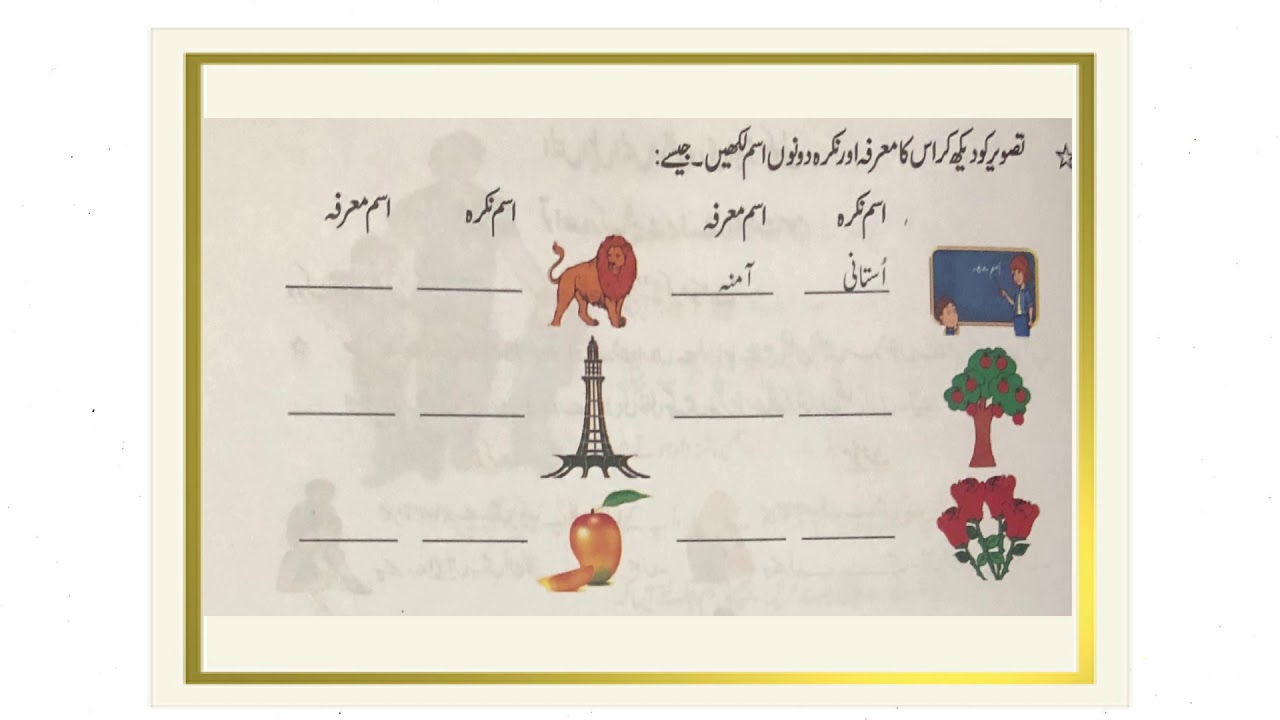 ☆ تصویر کو دیکھ کر اس کا معرفہ اور نکرہ دونوں اسم لکھیں۔ جیسے:
اسم نکرہ اسم معرفہ اسم نکرہ اسم معرفہ
اُستانی آمنہ